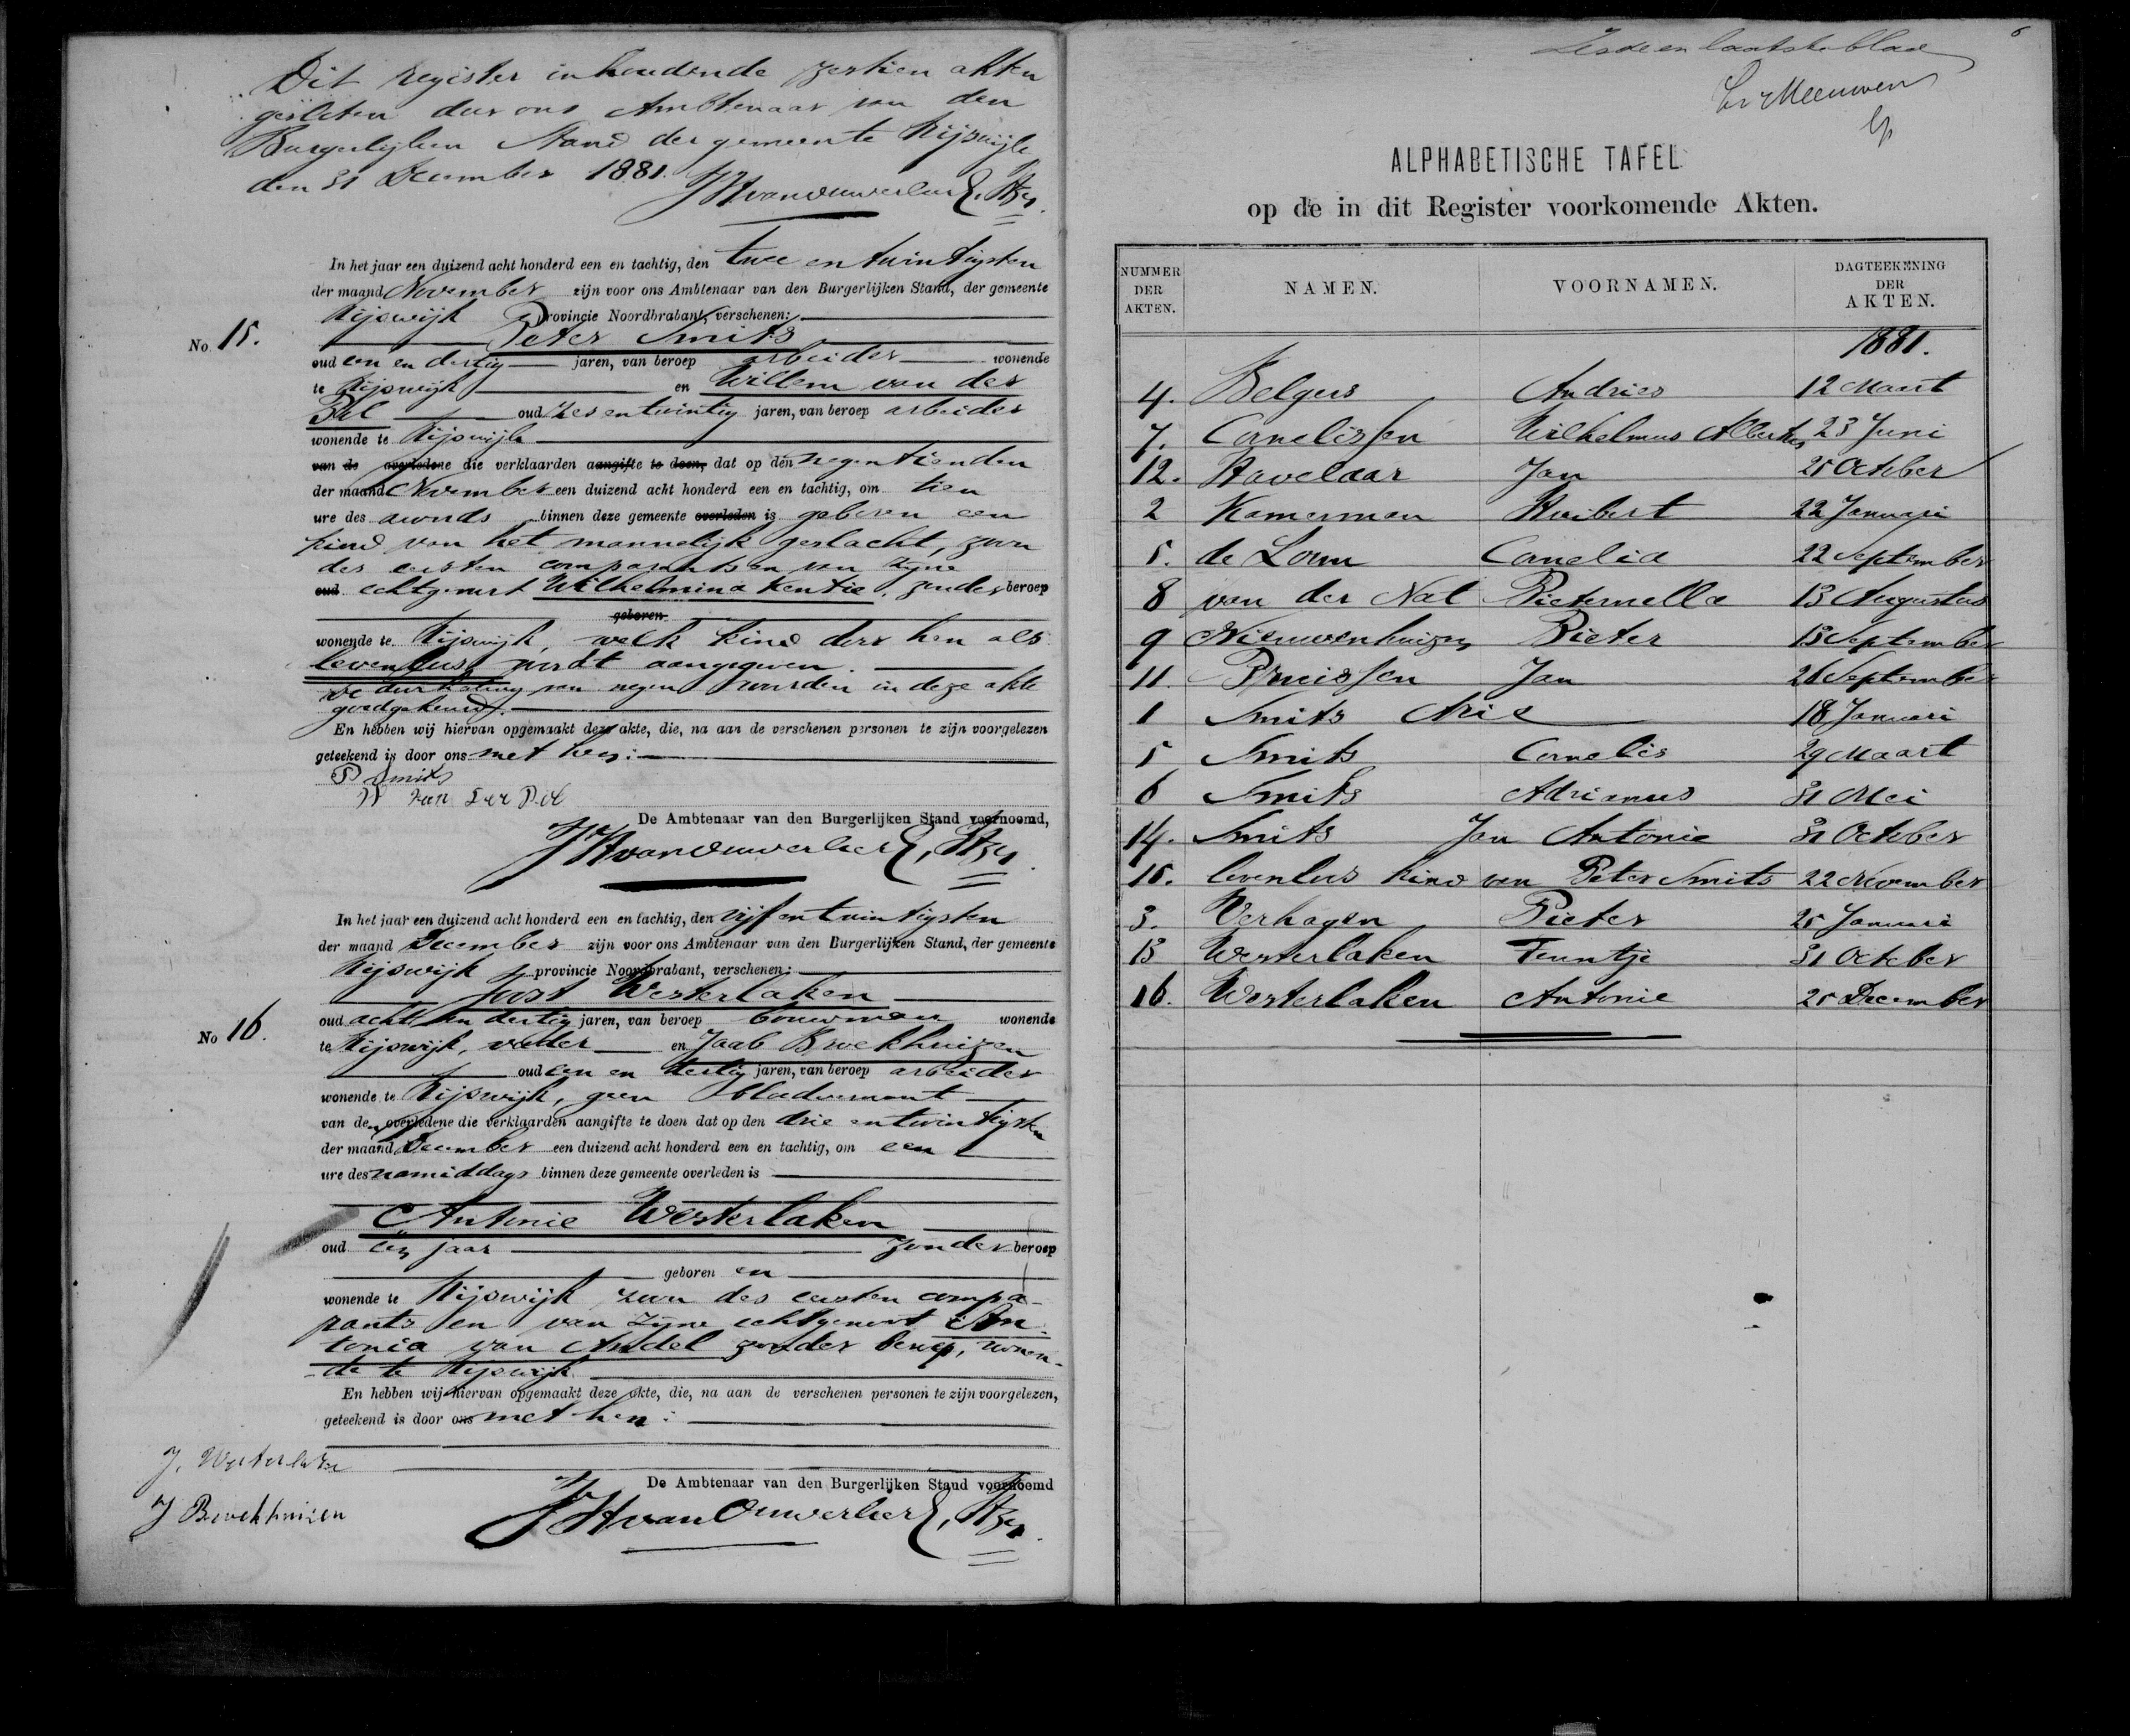 Dit register inhoudende zestien akten
gesloten door ons Ambtenaar van den
Burgerlijken Stand der gemeente Rijswijk
den 31 December 1881.
JHvanOuwerkerk, Hzn.
In het jaar een duizend acht honderd een en tachtig, den twee en twintigsten
der maand November zijn voor ons Ambtenaar van den Burgerlijken Stand, der gemeente
Rijswijk Provincie Noordbrabant, verschenen:
No. 15. Peter Smits
oud een en dertig jaren, van beroep arbeider wonende
te Rijswijk en Willem van der
Pol oud zes en twintig jaren, van beroep arbeider
wonende te Rijswijk
van de overledene die verklaarden aangifte te doen, dat op den negentienden
der maand November een duizend acht honderd een en tachtig, om tien
ure des avonds binnen deze gemeente overleden is geboren een
kind van het mannelijk geslacht, zoon
des eersten comparants en van zijne
oud echtgenoot Wilhelmina Kentie, zonder beroep
geboren
wonende te Rijswijk, welk kind door hen als
levenloos wordt aangegeven.
De doorhaling van negen woorden in deze akte
goedgekeurd.
En hebben wij hiervan opgemaakt deze akte, die, na aan de verschenen personen te zijn voorgelezen
geteekend is door ons met hen:
P Smits
W van der Pol
De Ambtenaar van den Burgerlijken Stand voornoemd,
JHvanOuwerkerk, Hzn.
In het jaar een duizend acht honderd een en tachtig, den vijf en twintigsten
der maand December zijn voor ons Ambtenaar van den Burgerlijken Stand, der gemeente
Rijswijk provincie Noordbrabant, verschenen:
Joost Westerlaken
No 16. oud acht en dertig jaren, van beroep bouwman wonende
te Rijswijk, vader en Jacob Broekhuizen
oud een en dertig jaren, van beroep arbeider
wonende te Rijswijk, geen bloedverwant
van den overledene die verklaarden aangifte te doen dat op den drie en twintigsten
der maand December een duizend acht honderd een en tachtig, om een
ure des namiddags binnen deze gemeente overleden is
Antonie Westerlaken
oud een jaar zonder beroep
geboren en
wonende te Rijswijk zoon des eersten compa-
rants en van zijne echtgenoot An
tonia van Andel zonder beroep, wonen-
de te Rijswijk
En hebben wij hiervan opgemaakt deze akte, die, na aan de verschenen personen te zijn voorgelezen,
geteekend is door ons met hen:
J. Westerlaken
De Ambtenaar van den Burgerlijken Stand voornoemd
J Broekhuizen
JHvanOuwerkerk, Hzn.
6
Zesde en laatste blad
ALPHABETISCHE TAFEL
op de in dit Register voorkomende Akten.
NUMMER DER AKTEN. NAMEN. VOORNAMEN. DAGTEEKENING DER AKTEN.
1881.
4. Belgers Andries 12 Maart
7. Cornelissen Wilhelmus Albertus 23 Juni
12. Havelaar Jan 25 October
2 Kamerman Huibert 22 Januari
5. de Loun Cornelia 22 September
8 van der Nat Pieternella 13 Augustus
9 Nieuwenhuizen Pieter 13 September
11. Pruissen Jan 26 September
1 Smits Arie 18 Januari
5 Smits Cornelis 29 Maart
6 Smits Adrianus 31 Mei
14. Smits Jan Antonie 31 October
15. levenloos kind van Peter Smits 22 November
3. Verhagen Pieter 25 Januari
13 Westerlaken Teuntje 31 October
16. Westerlaken Antonie 25 December